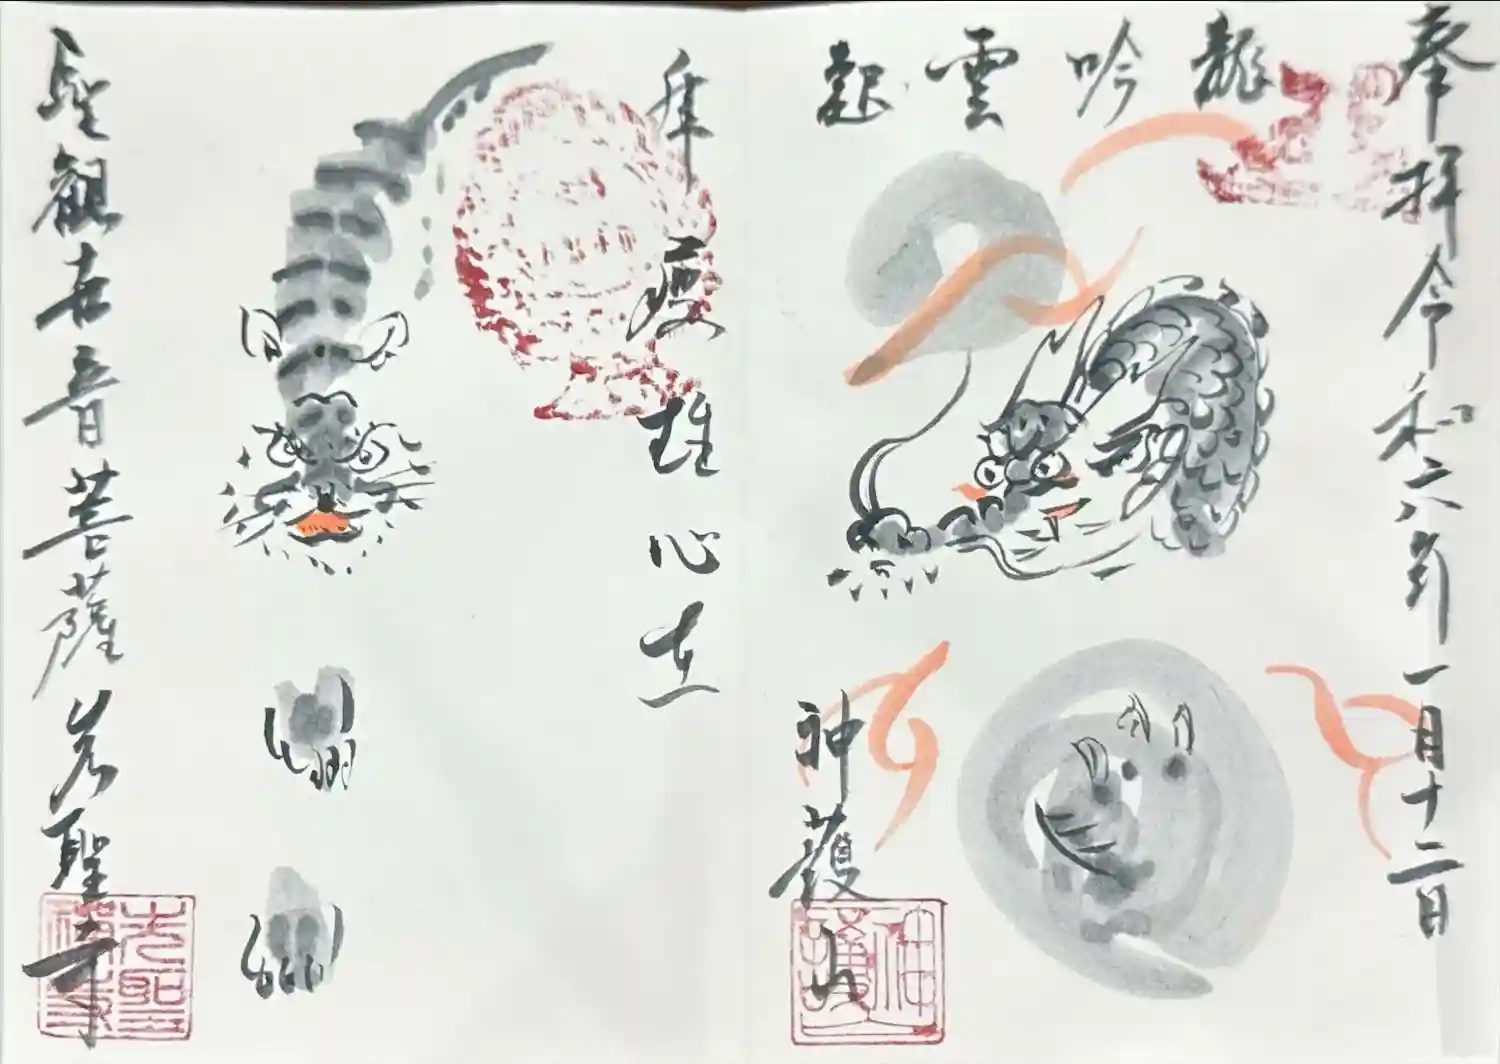 奉拝 令和六年一月十二日
龍吟雲起
神護山
乕痩雄心在
聖観世音菩薩 光聖寺